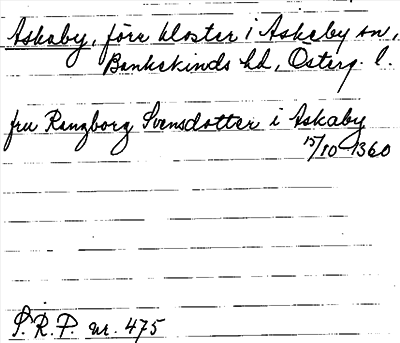 Askaby, förr kloster i Askeby sn,
Bankekinds hd, Österg. l.
fru Rangborg Svensdotter i Askaby
15/10 1360
S.R.P. nr. 475